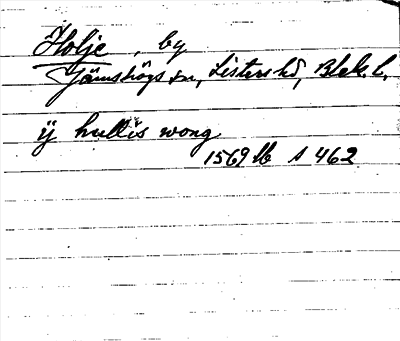 Holje, by
Jämshögs sn, Listers hd, Blek. l.
ÿ hulliis wong
1569 lb s 462